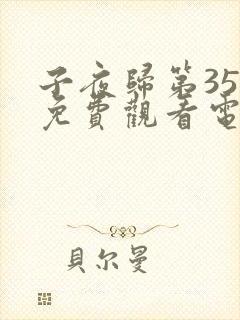 子夜歸第35
免費觀看電
貝尔曼